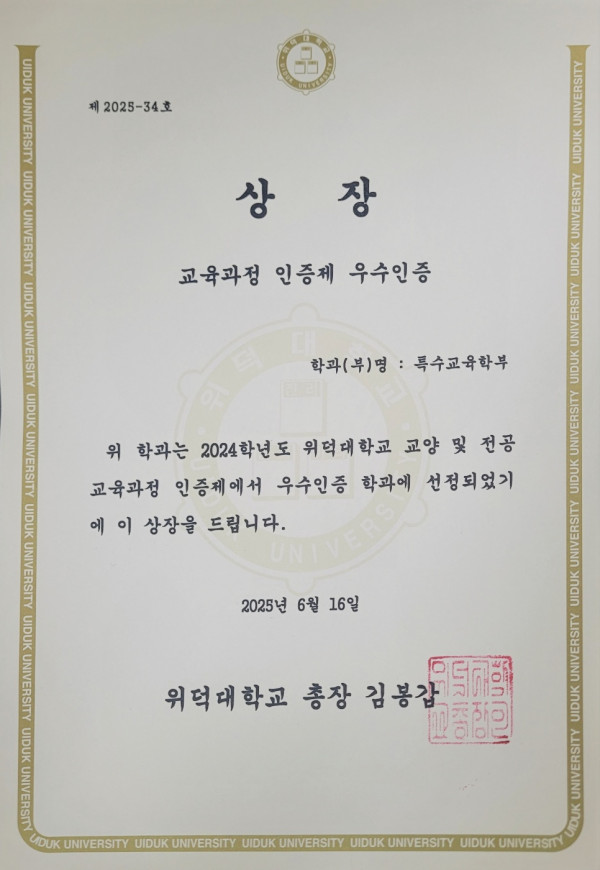 위덕대학교
UIDUK UNIVERSITY
제 2025-34호
상 장
교육과정 인증제 우수인증
학과(부)명 : 특수교육학부
위 학과는 2024학년도 위덕대학교 교양 및 전공
교육과정 인증제에서 우수인증 학과에 선정되었기
에 이 상장을 드립니다.
2025년 6월 16일
위덕대학교 총장 김봉갑
위덕대학교
UNIVERSITY
UIDUK UNIVERSITY UIDUK UNIVERSITY UIDUK UNIVERSITY UIDUK UNIVERSITY UIDUK UNIVERSITY